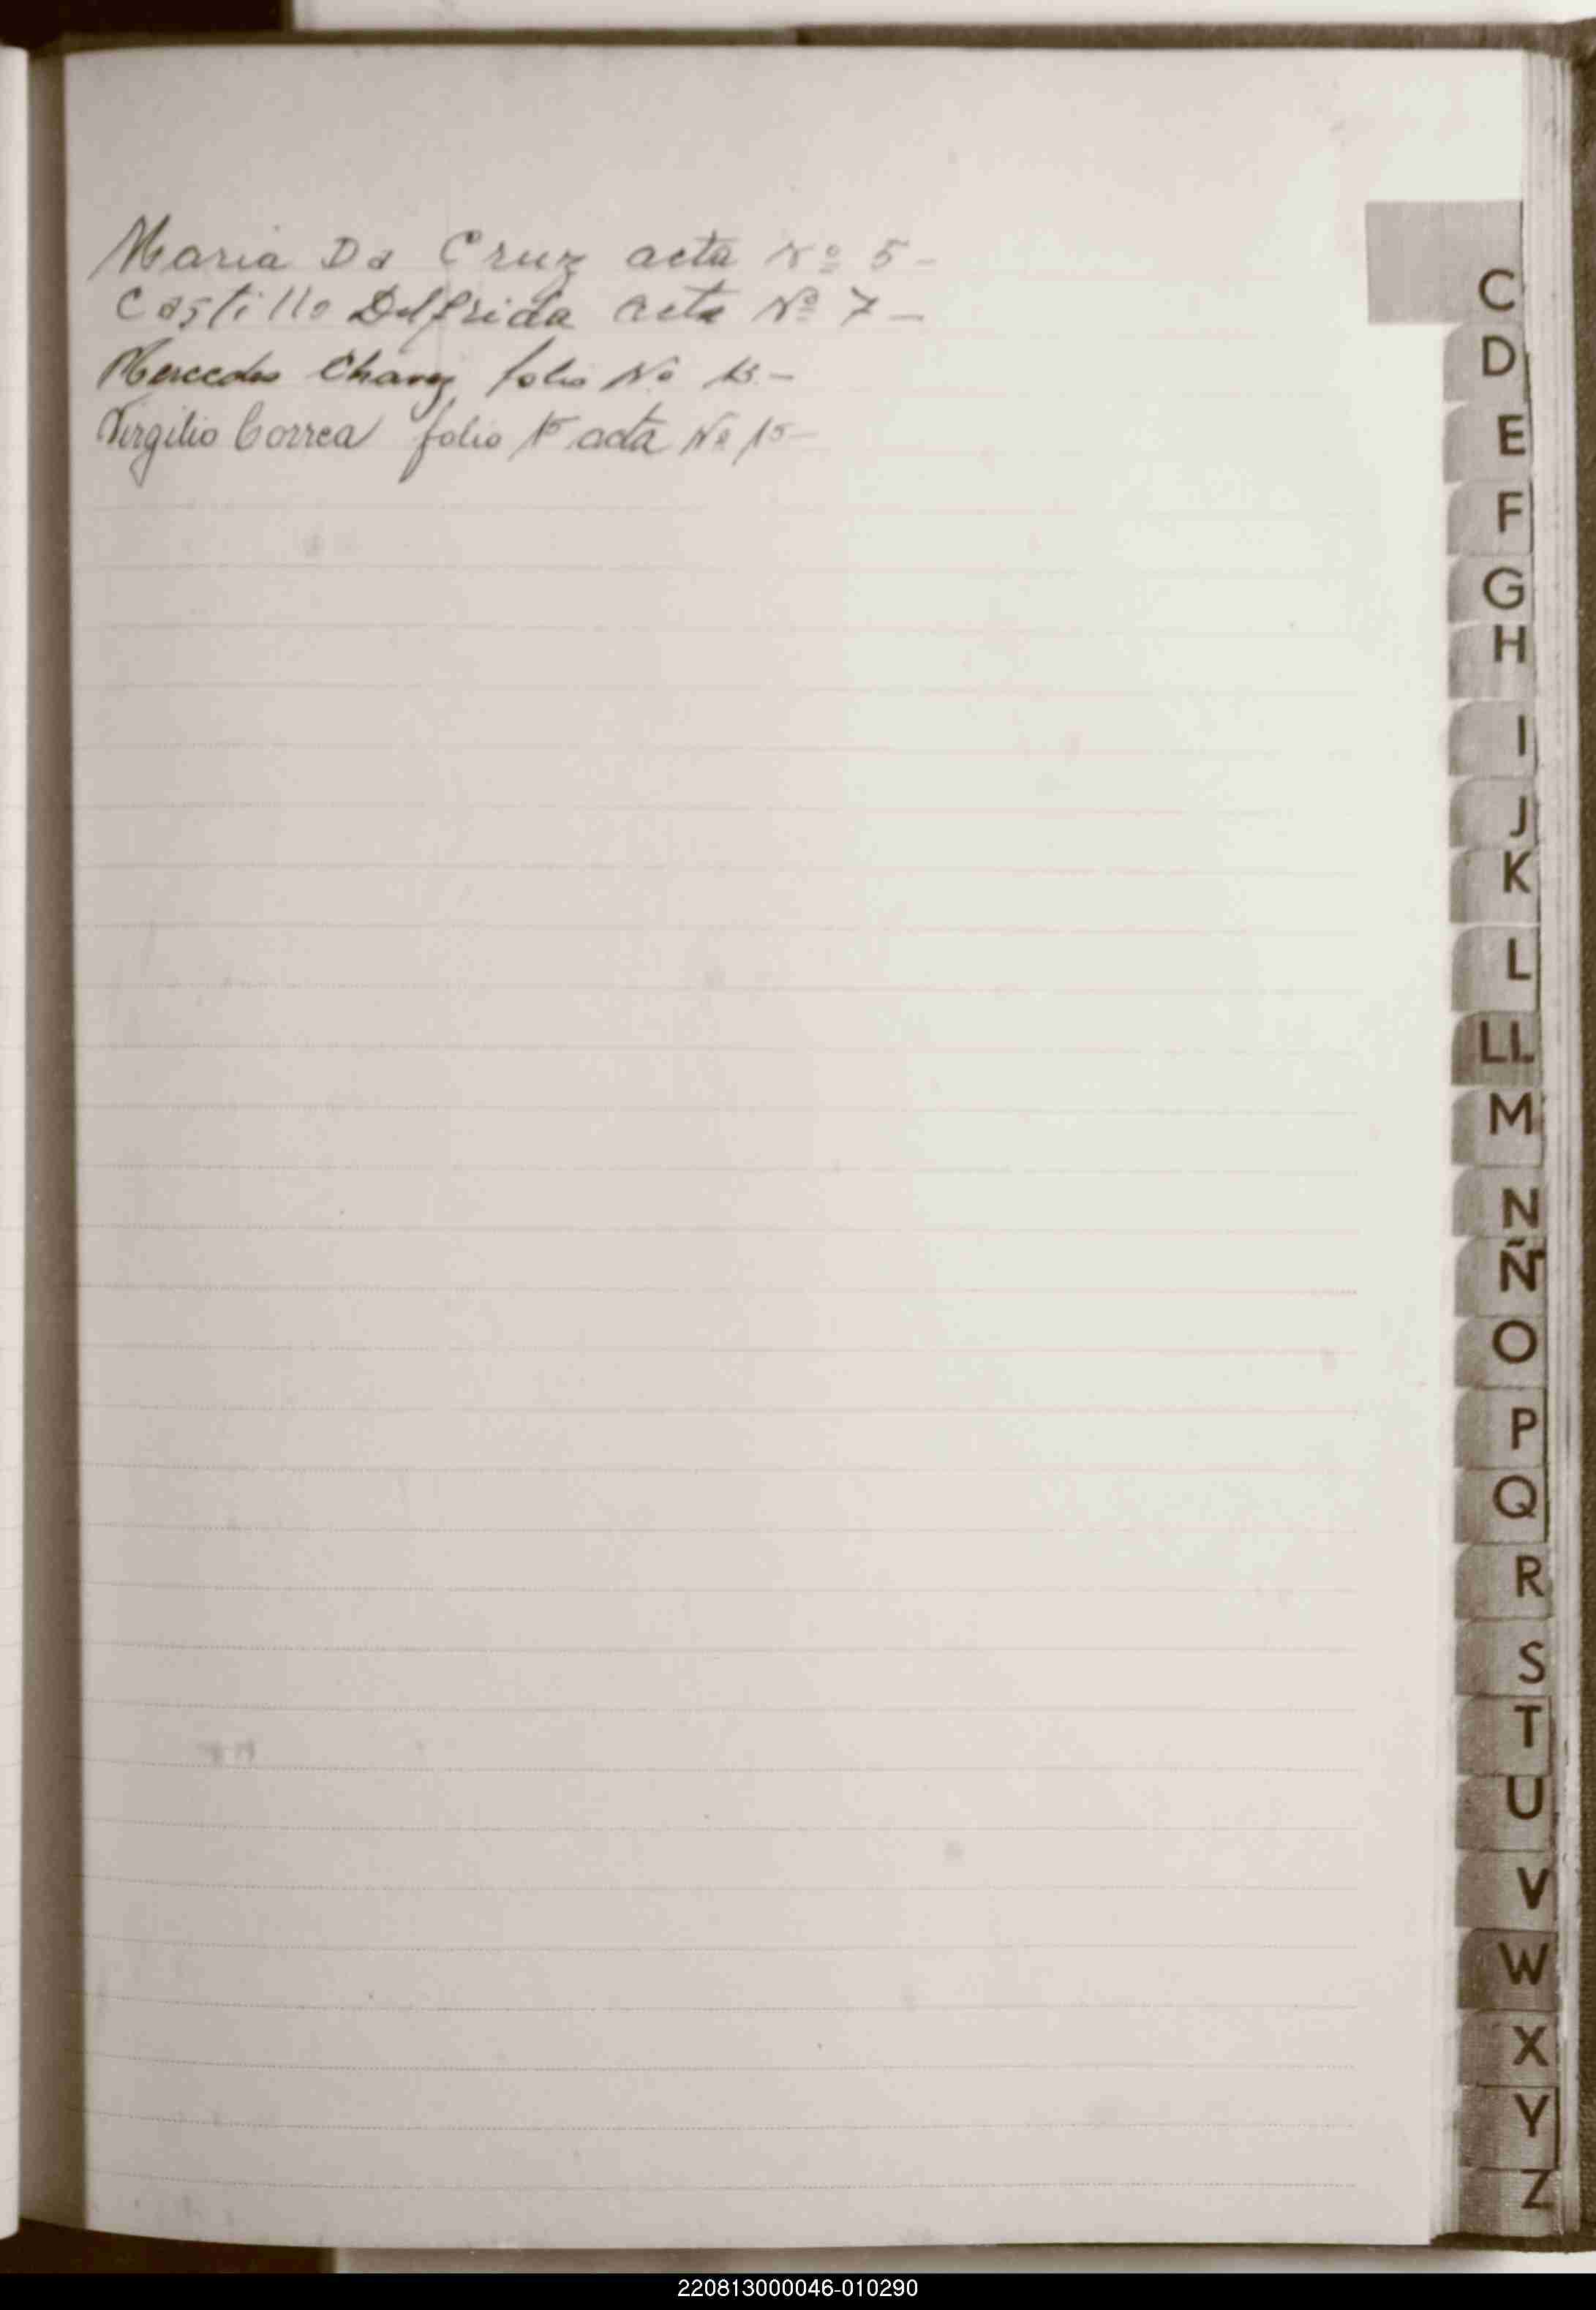 Maria Da Cruz acta Nº 5-
Castillo Delfrida acta Nº 7-
Mercedes Chavez folio Nº 13.-
Virgilio Correa folio acta Nº 15-
C
D
E
F
G
H
I
J
K
L
LL
M
N
Ñ
O
P
Q
R
S
T
U
V
W
X
Y
Z
220813000046-010290